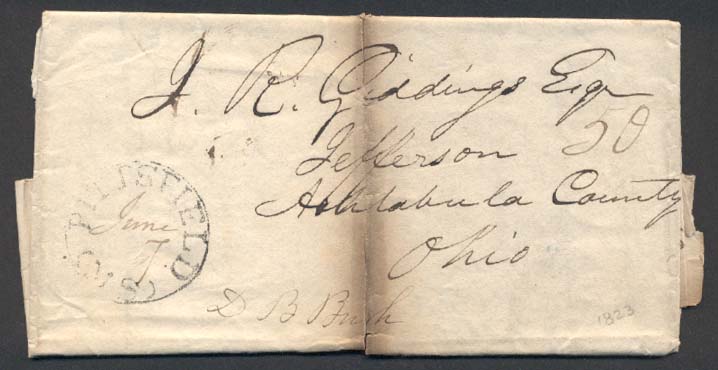 J. R. Giddings Esqr
50
Jefferson
Ashtabula County
Ohio
PITTSFIELD
June
7
D B Bush
1823